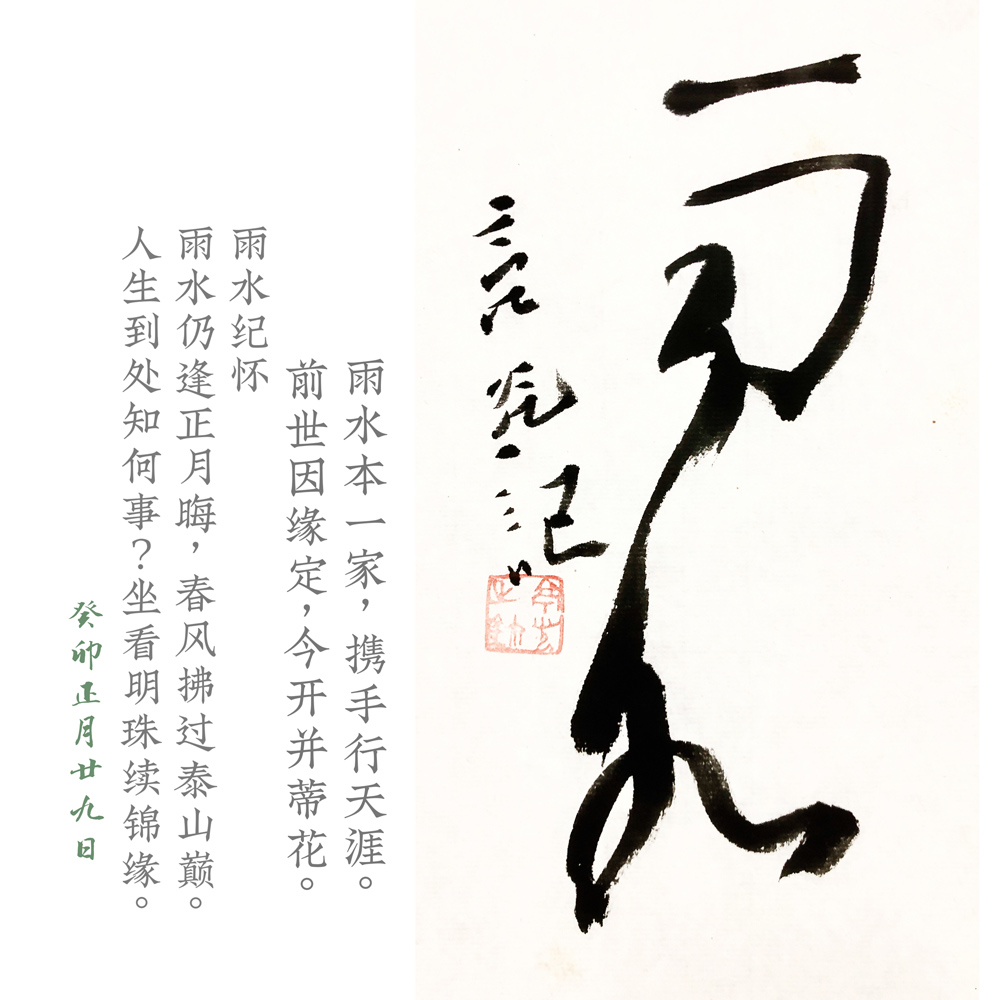 雨水
雨水本一家，携手行天涯。
前世因缘定，今开并蒂花。
雨水纪怀
雨水仍逢正月晦，春风拂过泰山巅。
人生到处知何事？坐看明珠续锦缘。
癸卯正月廿九日